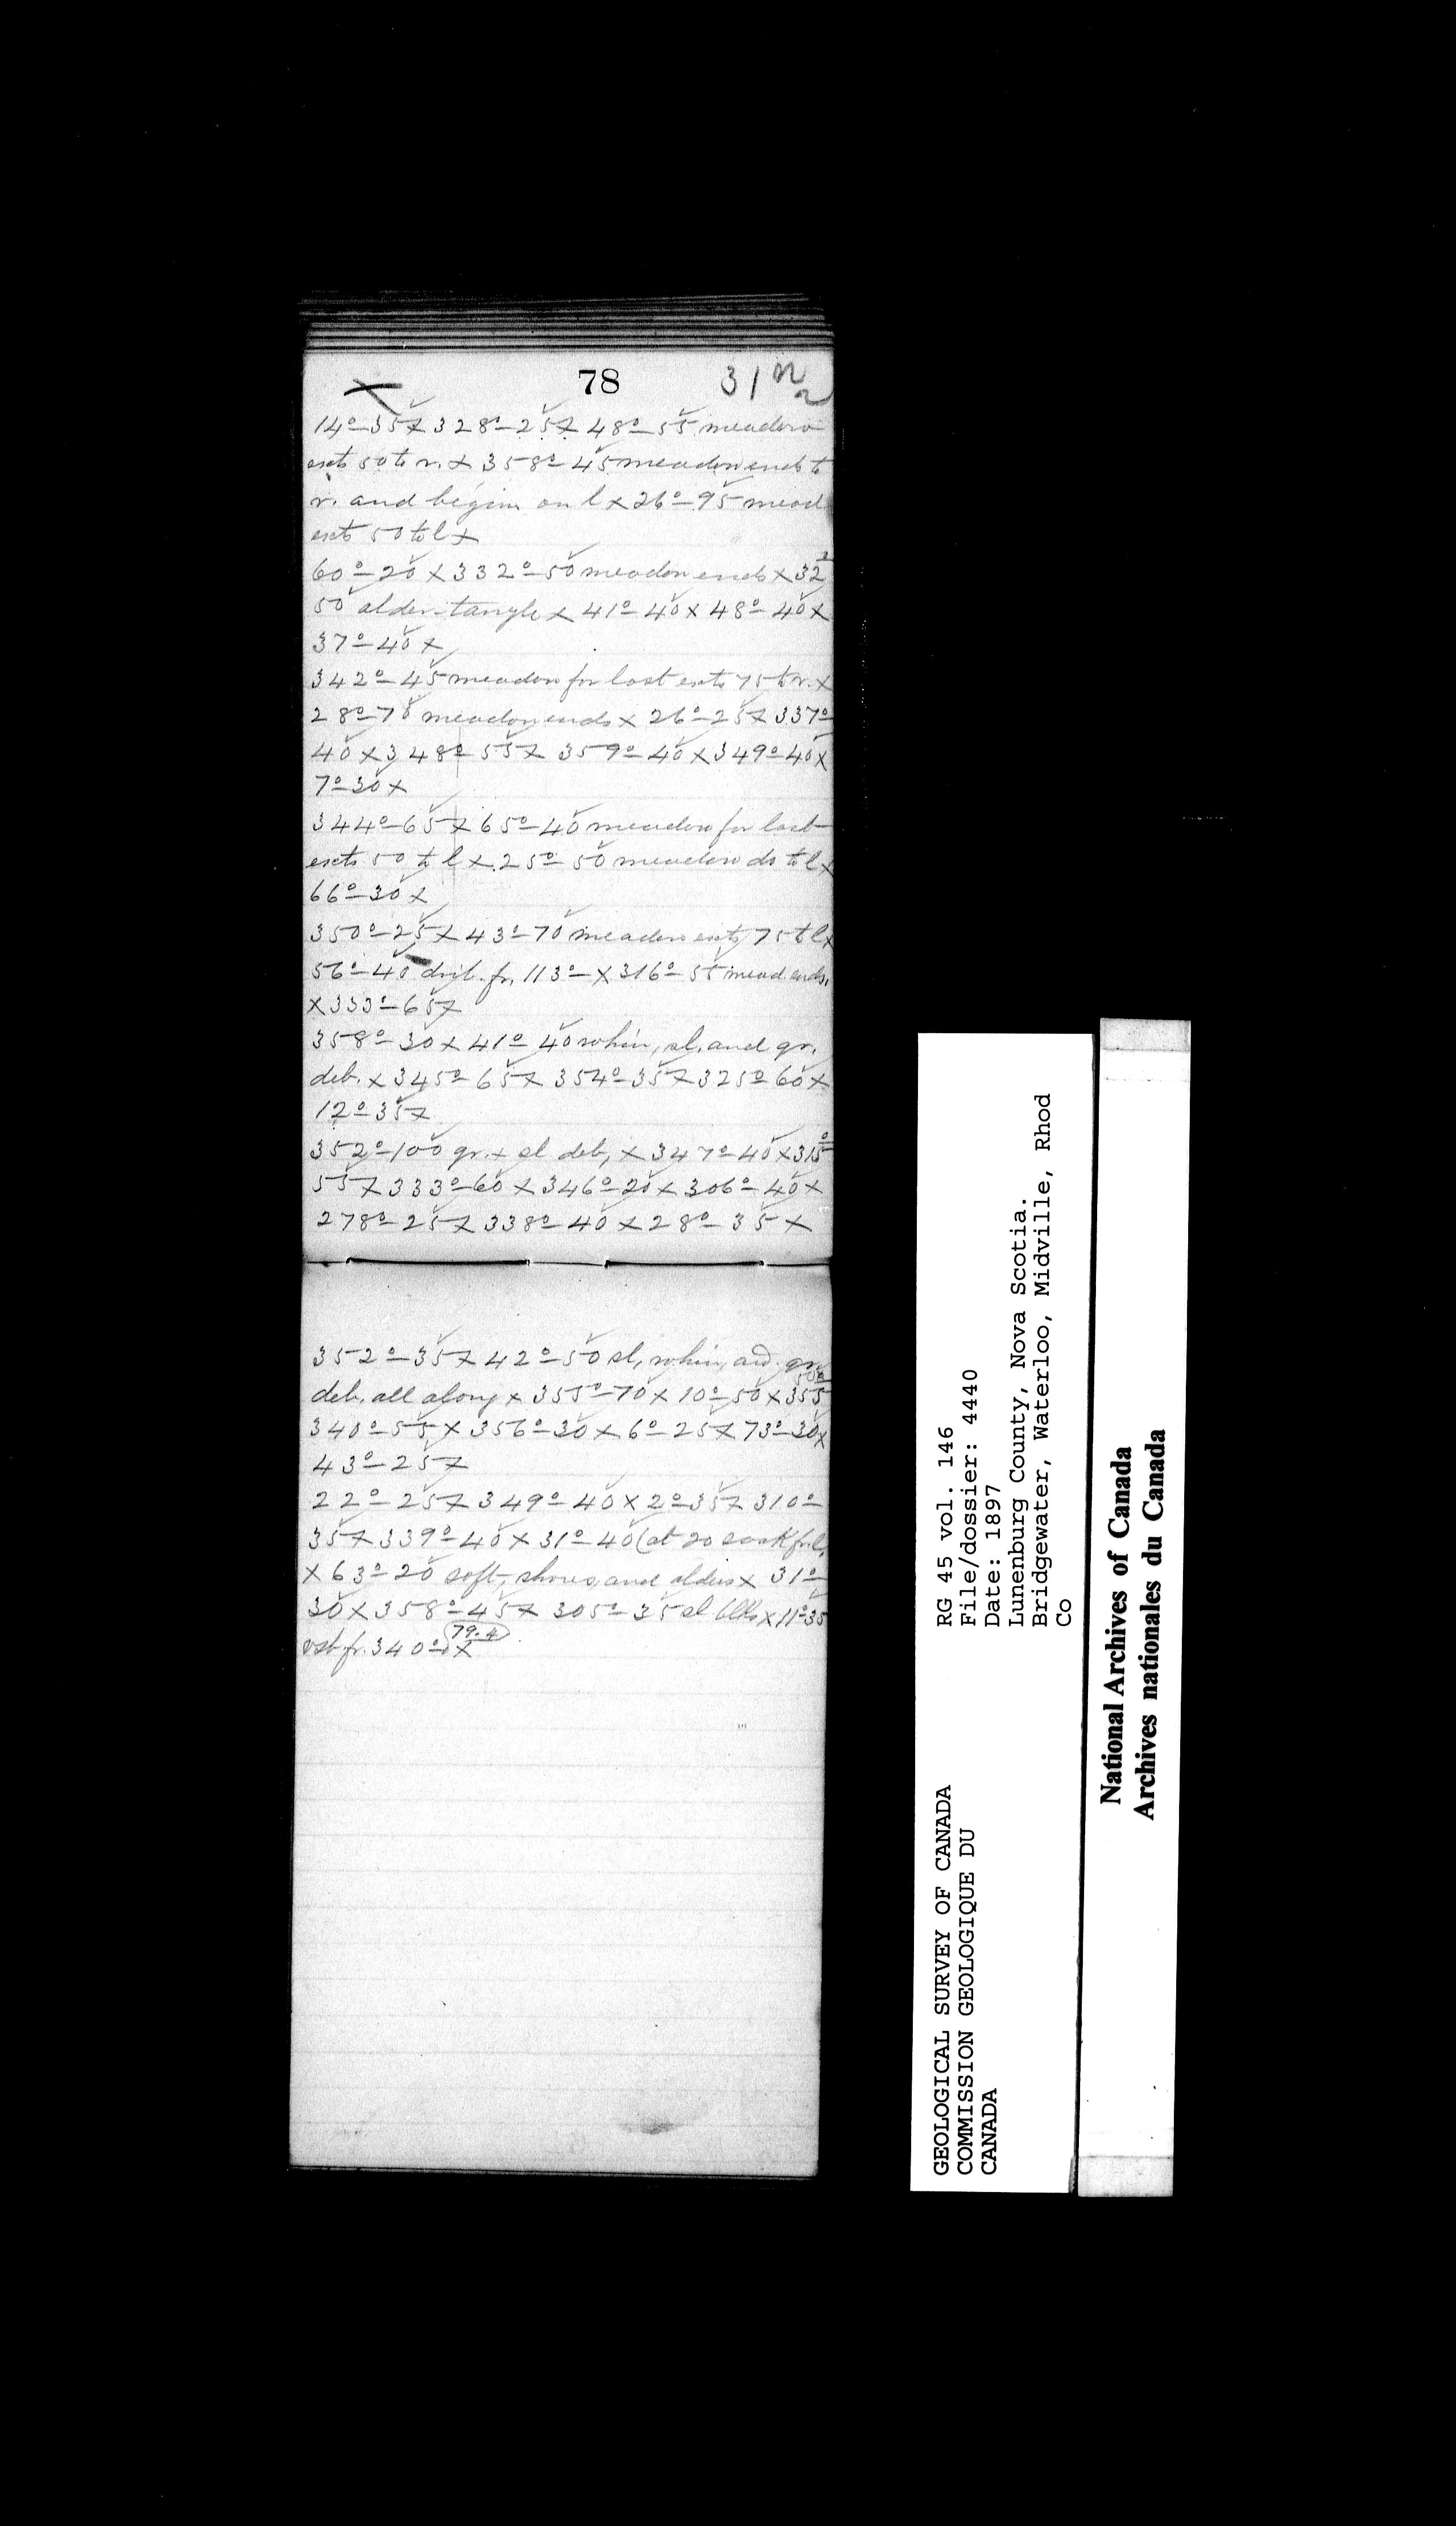 78 31
14°-35 x 328°-25 x 48°-55 meadow
exts 50 to r. x 358°-45 meadow ends to
r. and begins on l x 26°-95 mead
exts 50 to l x
60°-20 x 332°-50 meadow ends x 32°
50 alder tangle x 41°-40 x 48°-40 x
37°-40 x
342°-45 meadow for last exts 75 to r. x
28°-70 meadow ends x 26°-25 x 337°
40 x 348°-55 x 359°-40 x 349°-40 x
7°-30 x
344°-65 x 65°-40 meadow for last
exts 50 to l x 25°-50 meadow do to l x
66°-30 x
350°-25 x 43°-70 meadow exts 75 to l x
56°-40 drib. fr. 113°- x 316°-55 mead ends.
x 333°-65 x
358°-30 x 41°-40 whin, sl. and gr.
deb. x 345°-65 x 354°-35 x 325°-60 x
12°-35 x
352°-100 gr. + sl deb, x 347°-40 x 315°
55 x 333°-60 x 346°-20 x 306°-40 x
278°-25 x 338°-40 x 28°-35 x
352°-35 x 42°-50 sl, whin, and gr
deb. all along x 355°-70 x 10°-50 x 355°
340°-55 x 356°-30 x 6°-25 x 73°-30 x
43°-25 x
22°-25 x 349°-40 x 2°-35 x 310°
35 x 339°-40 x 31°-40 (at 20 soak fr. l.
x 63°-20 soft, shores and alders x 31°
30 x 358°-45 x 305°-35 sl blks x 11°-35
fr. 340°) x
79.4
RG 45 vol. 146
File/dossier: 4440
Date: 1897
Lunenburg County, Nova Scotia.
Bridgewater, Waterloo, Midville, Rhod
Co
GEOLOGICAL SURVEY OF CANADA
COMMISSION GEOLOGIQUE DU
CANADA
National Archives of Canada
Archives nationales du Canada